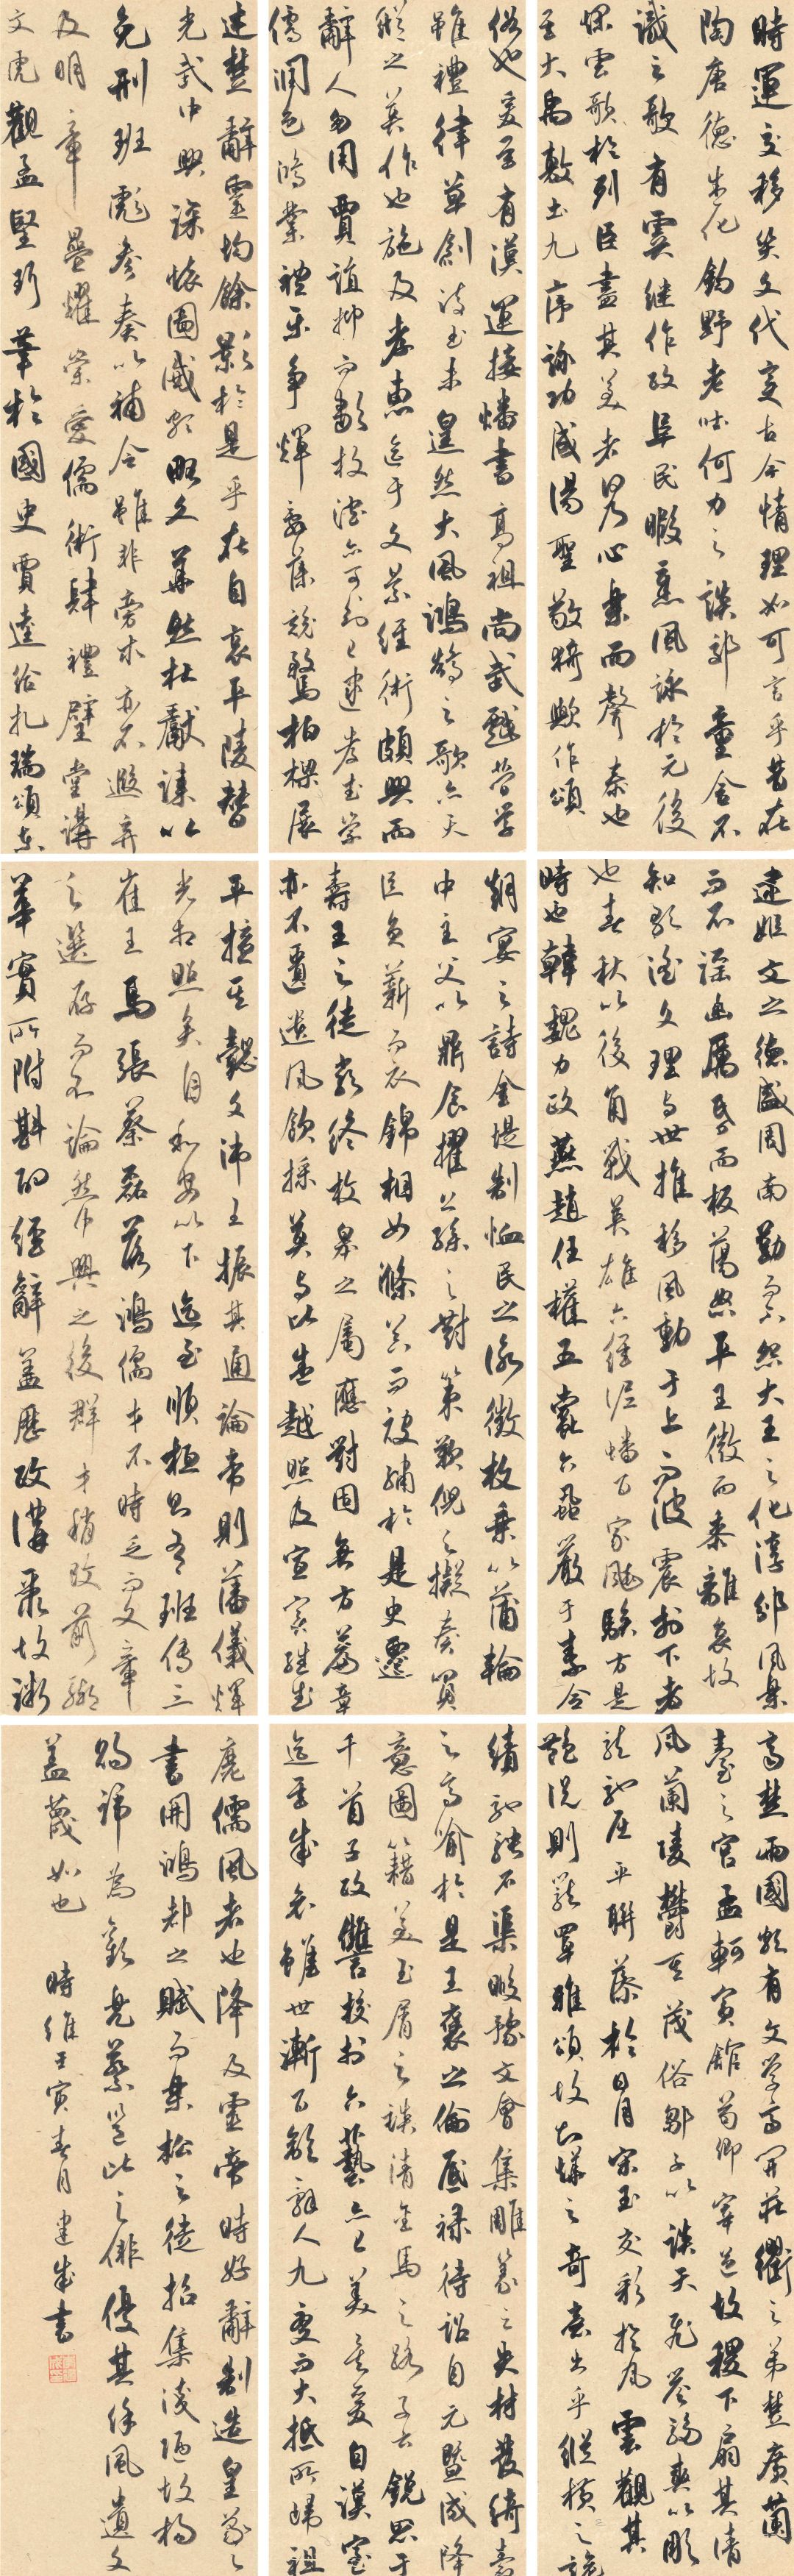 時運交移質文代變古今情理如可言乎昔在
陶唐德盛化鈞野老吐何力之談郊童含不
識之歌有虞繼作政阜民暇薰風詠於元後
爛雲歌於列臣盡其美者何乃心樂而聲泰也
至大禹敷土九序詠功成湯聖敬猗歟作頌
逮姬文之德盛周南勤而不怨大王之化淳邠風樂
而不淫幽厲昏而板蕩怒平王微而黍離哀故
知歌謠文理與世推移風動于上而波震於下者
也春秋以後角戰英雄六經泥蟠百家飆駭方是
時也韓魏力政燕趙任權五蠹六蝨嚴于秦令
齊楚兩國頗有文學齊開莊衢之第楚廣蘭
臺之宮孟軻賓館荀卿宰邑故稷下扇其清
風蘭陵鬱其茂俗鄒子以談天飛譽騶奭以雕
龍馳屈平聯藻於日月宋玉交彩於風雲觀其
艷說則籠罩雅頌故知燁之奇意出乎縱橫之詭
俗也爰至有漢運接燔書高祖尚武戲簡學
雖禮律草創詩書未遑然大風鴻鵠之歌亦天
縱之英作也施及孝惠迄于文景經術頗興而
辭人勿用賈誼抑而鄒枚沈亦可知已逮孝武崇
儒潤色鴻業禮樂爭輝辭藻競騖柏梁展
朝宴之詩金堤制恤民之詠徵枚乘以蒲輪
申主父以鼎食擢公孫之對策歎倪之擬奏買
臣負薪而衣錦相如滌器而被繡於是史遷
壽王之徒嚴終枚皋之屬應對固無方篇章
亦不匱遺風餘採莫與比盛越昭及宣實繼武
績馳騁石渠暇豫文會集雕篆之軼材發綺縠
之高喻於是王褒之倫底祿待詔自元暨成降
意圖籍美玉屑之談清金馬之路子雲銳思于
千首子政讎校於六藝亦已美矣爰自漢室
迄至成哀雖世漸百齡辭人九變而大抵所歸祖
述楚辭靈均餘影於是乎在自哀平陵替
光武中興深懷圖讖頗略文華然杜獻誄以
免刑班彪參奏以補令雖非旁求亦不遐棄
及明章疊耀崇愛儒術肄禮璧堂講
文虎觀孟堅珥筆於國史賈逵給札瑞頌東
平擅其懿文沛王振其通論帝則藩儀輝
光相照矣自和安以下迄至順桓則有班傅三
崔王馬張蔡磊落鴻儒才不時乏而文章
之選存而不論然中興之後群才稍改前轍
華實所附斟酌經辭蓋歷政講聚故漸
靡儒風者也降及靈帝時好辭制造皇羲之
書開鴻都之賦而樂松之徒招集淺陋故楊
賜號為驩兜蔡邕比之俳優其餘風遺文
蓋蔑如也 時維壬寅春月建成書